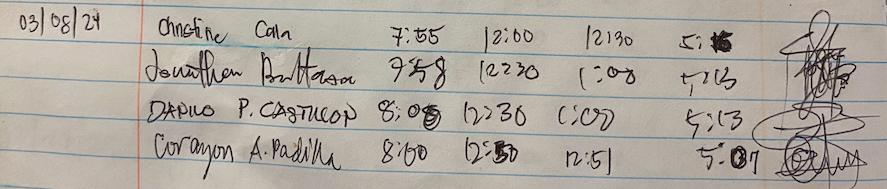 03/08/24 Christine Cala 7:55 12:00 12:30 5:15
Jonathan Baltasa 7:58 12:30 1:00 5:13
DANILO P. CASTILLON 8:05 12:30 1:00 5:13
Corazon A. Padilla 8:00 12:30 12:51 5:07